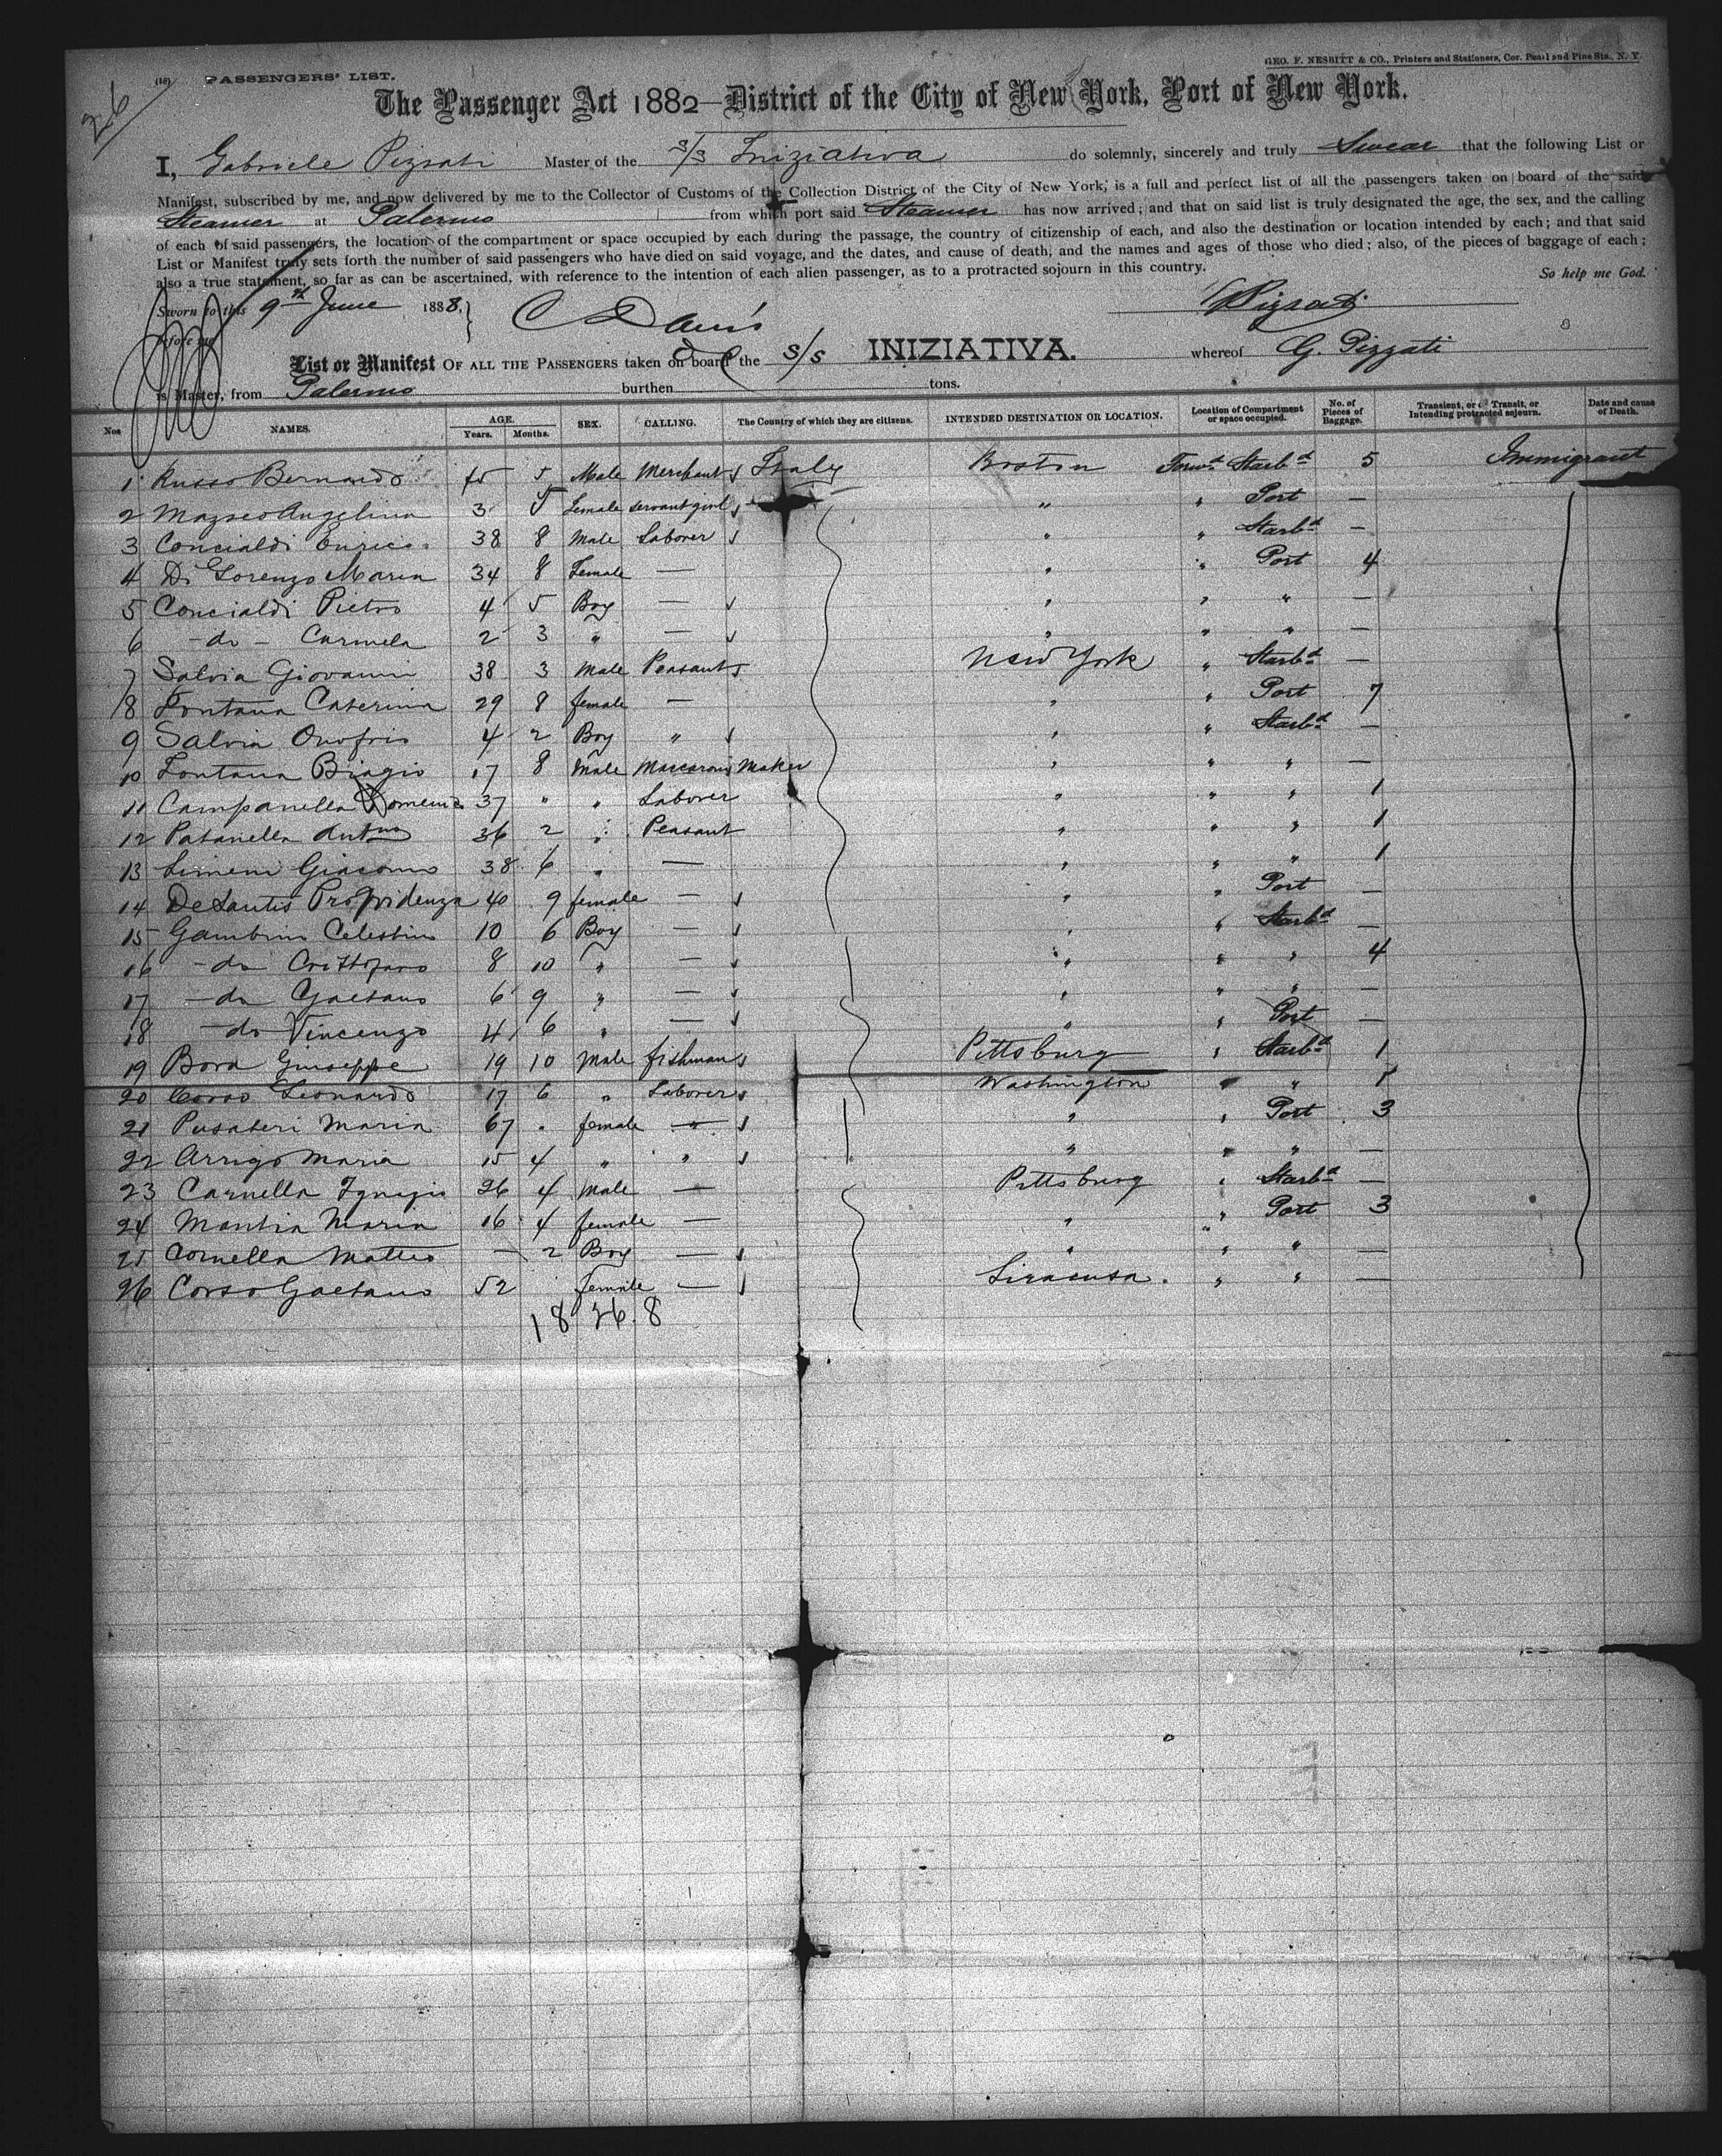 26
(18) PASSENGERS' LIST.
GEO. F. NESBITT & CO., Printers and Stationers, Cor. Pearl and Pine Sts., N. Y.
The Passenger Act 1882—District of the City of New York, Port of New York.
I, Gabriele Pizzati Master of the S/S Iniziativa do solemnly, sincerely and truly Swear that the following List or
Manifest, subscribed by me, and now delivered by me to the Collector of Customs of the Collection District of the City of New York, is a full and perfect list of all the passengers taken on board of the said
Steamer at Palermo from which port said Steamer has now arrived; and that on said list is truly designated the age, the sex, and the calling
of each of said passengers, the location of the compartment or space occupied by each during the passage, the country of citizenship of each, and also the destination or location intended by each; and that said
List or Manifest truly sets forth the number of said passengers who have died on said voyage, and the dates, and cause of death, and the names and ages of those who died; also, of the pieces of baggage of each;
also a true statement, so far as can be ascertained, with reference to the intention of each alien passenger, as to a protracted sojourn in this country. So help me God.
Sworn to this 9th June 1888, Pizzati
before me C Davis
List or Manifest OF ALL THE PASSENGERS taken on board the S/S INIZIATIVA. whereof G. Pizzati
is Master, from Palermo burthen tons.
Nos NAMES. AGE. Years. Months. SEX. CALLING. The Country of which they are citizens. INTENDED DESTINATION OR LOCATION. Location of Compartment or space occupied. No. of Pieces of Baggage. Transient, or in Transit, or Intending protracted sojourn. Date and cause of Death.
1 Russo Bernardo 45 5 Male Merchant Italy Boston Forwd Starbd 5 Immigrant
2 Angelina 3 5 Female servant girl " " Port —
3 Concialdi Enrico 38 8 Male Laborer " " Starbd —
4 Di Lorenzo Maria 34 8 Female — " " Port 4
5 Concialdi Pietro 4 5 Boy — " " " —
6 - do - Carmela 2 3 " — " " " —
7 Salvia Giovanni 38 3 Male Peasant New York " Starbd —
8 Fontana Caterina 29 8 female — " " Port 7
9 Salvia Onofrio 4 2 Boy " " " Starbd —
10 Fontana Biagio 17 8 Male Maccaroni Maker " " " —
11 Campanella Domenic 37 " " Laborer " " " 1
12 Patanella Antno 36 2 " Peasant " " " 1
13 Simeni Giacomo 38 6 " — " " " 1
14 De Santis Providenza 40 9 female — " " Port —
15 Gambino Celestino 10 6 Boy — " " Starbd —
16 - do Cristofaro 8 10 " — " " " 4
17 - do Gaetano 6 9 " — " " " —
18 - do Vincenzo 4 6 " — " " Port —
19 Bova Giuseppe 19 10 Male fishman Pittsburg " Starbd 1
20 Corso Leonardo 17 6 " Laborer Washington " " 1
21 Pusateri Maria 67 " female — " " Port 3
22 Arrigo Maria 15 4 " " " " " —
23 Carnella Ignazio 26 4 Male — Pittsburg " Starbd —
24 Mantia Maria 16 4 female — " " Port 3
25 Cornella Matteo — 2 Boy — " " " —
26 Corso Gaetano 52 female — Siracusa. " " —
18 26. 8